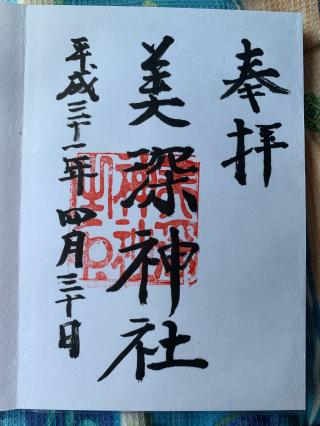 奉拝
美深神社
平成三十一年四月三十日